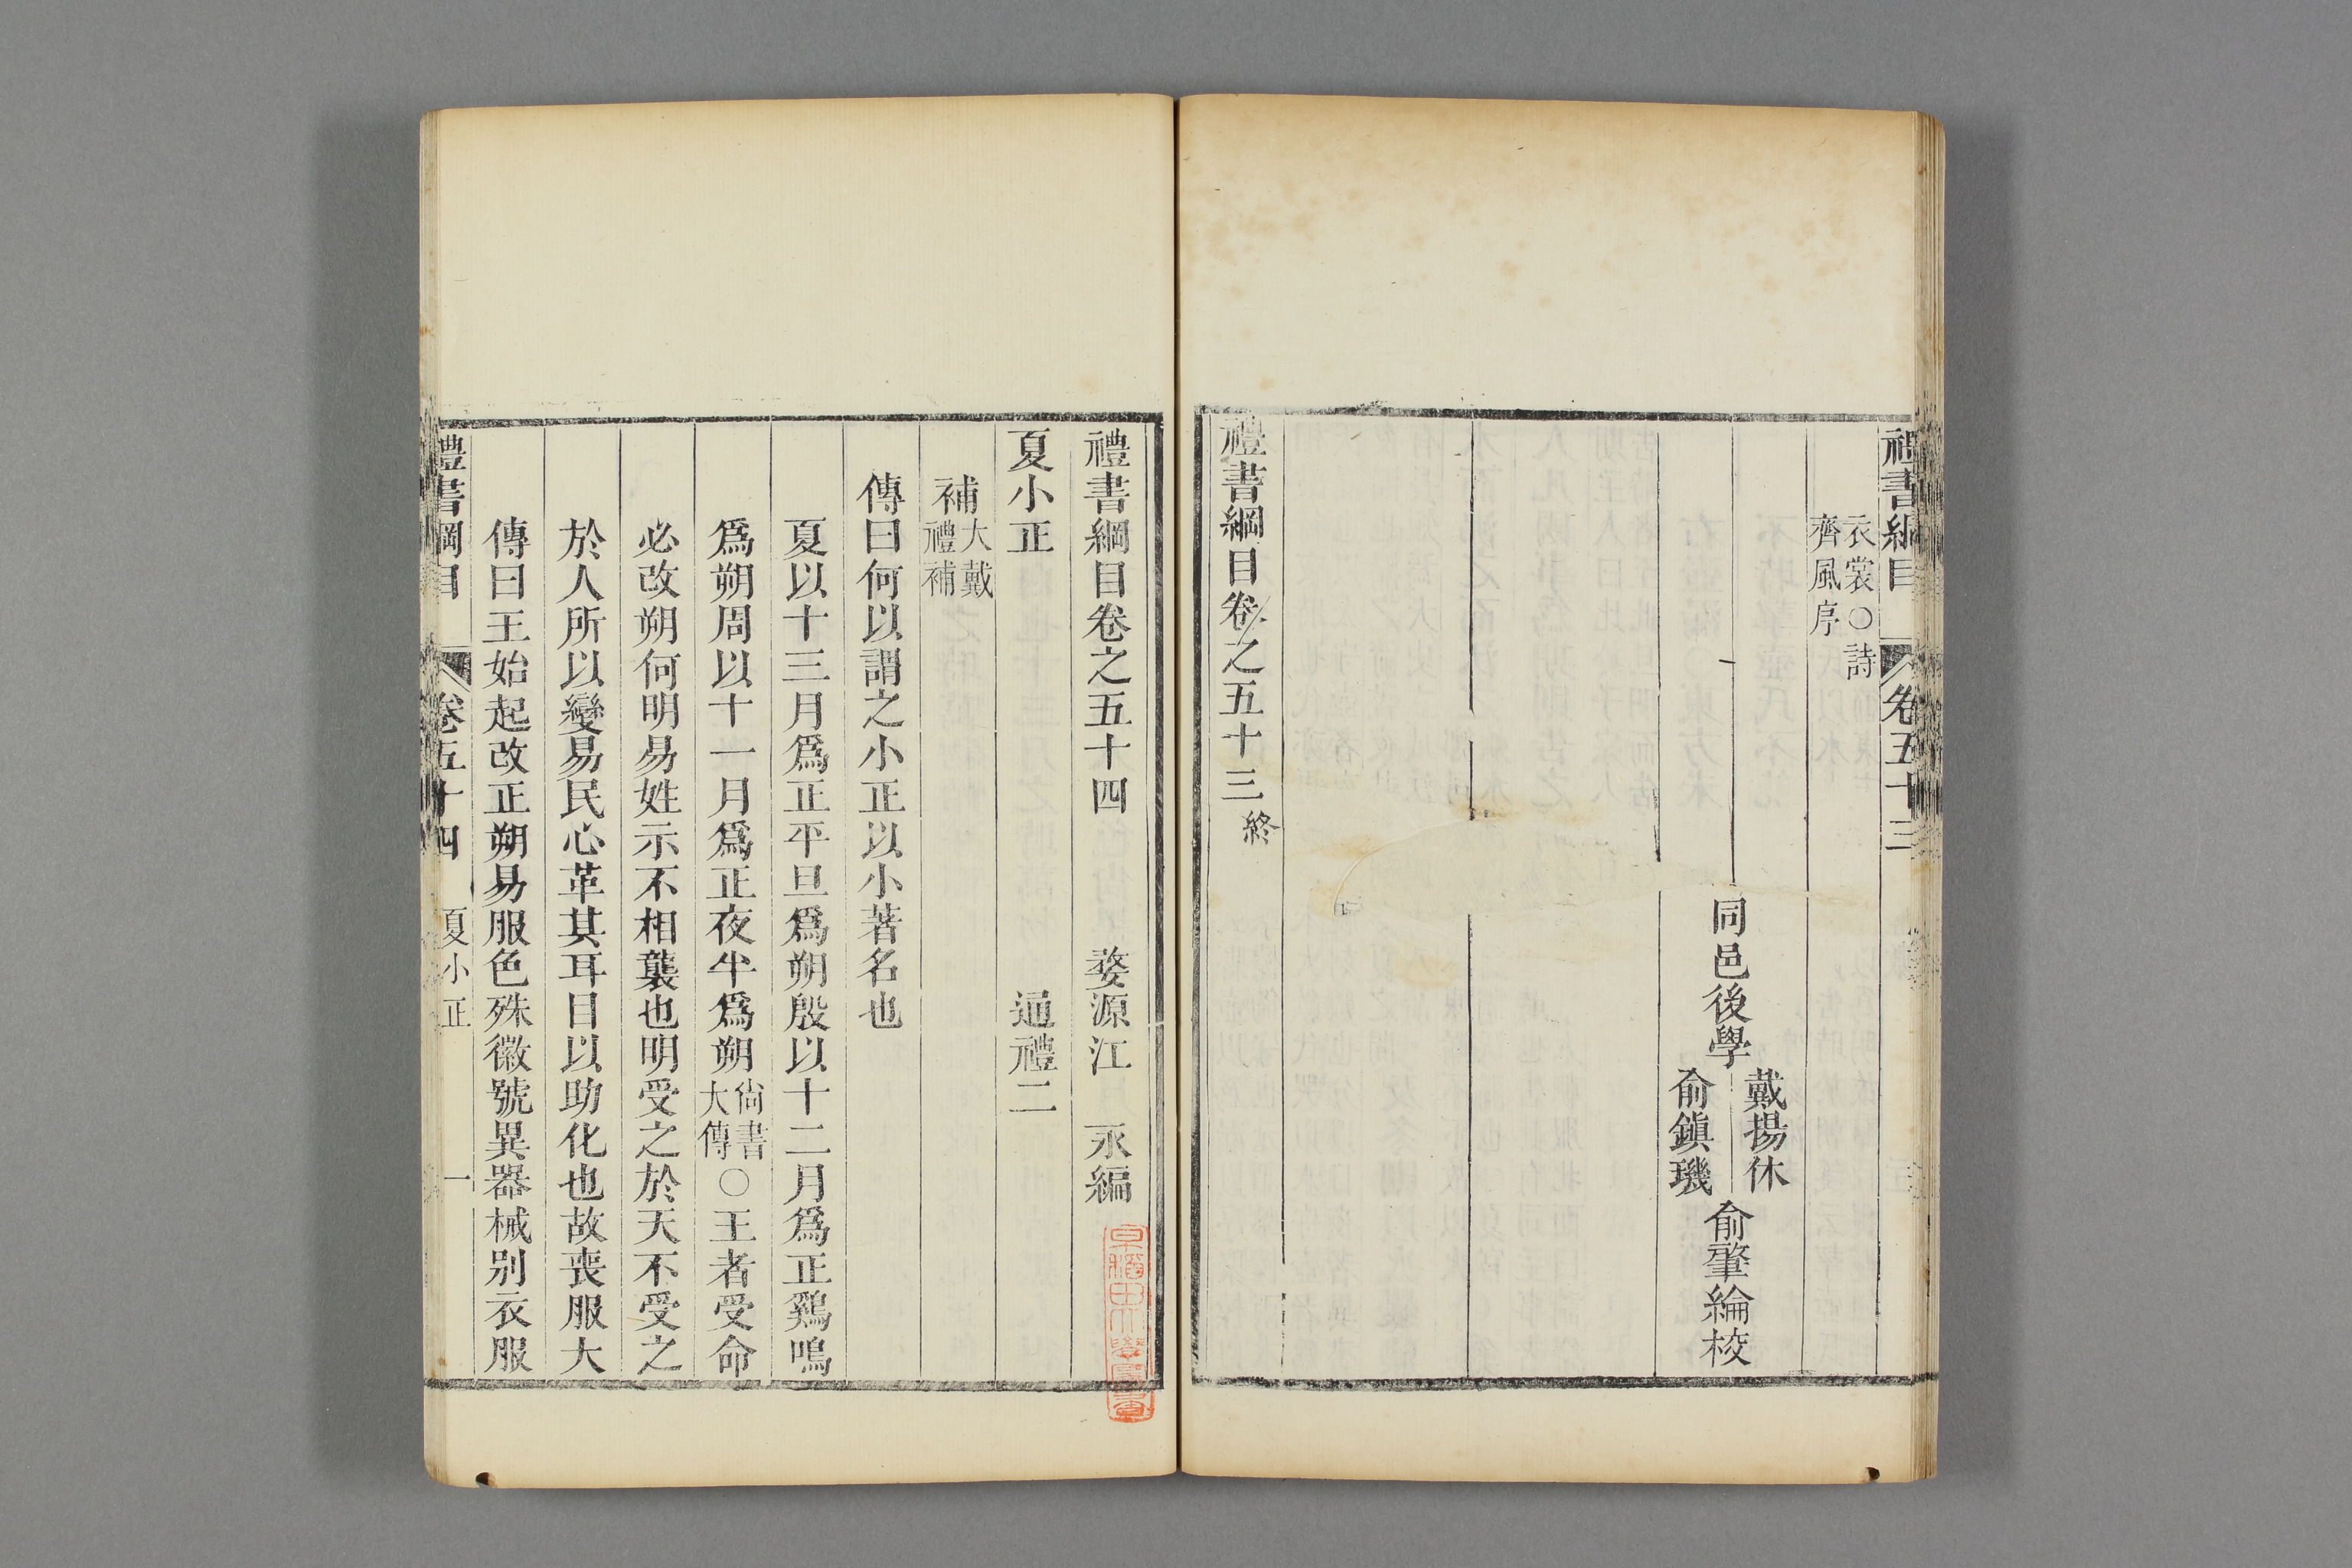 禮書綱目 卷五十三
衣裳○詩
齊風序
同邑後學 戴揚休 俞鎮璣 俞肇綸校
禮書綱目卷之五十三終
禮書綱目卷之五十四 婺源江 永編
夏小正 通禮二
補大戴禮補
傳曰何以謂之小正以小著名也
夏以十三月爲正平旦爲朔殷以十二月爲正鷄鳴
爲朔周以十一月爲正夜半爲朔尚書大傳○王者受命
必改朔何明易姓示不相襲也明受之於天不受之
於人所以變易民心革其耳目以助化也故喪服大
傳曰王始起改正朔易服色殊徽號異器械别衣服
禮書綱目 卷五十四 夏小正 一
早稻田大學圖書